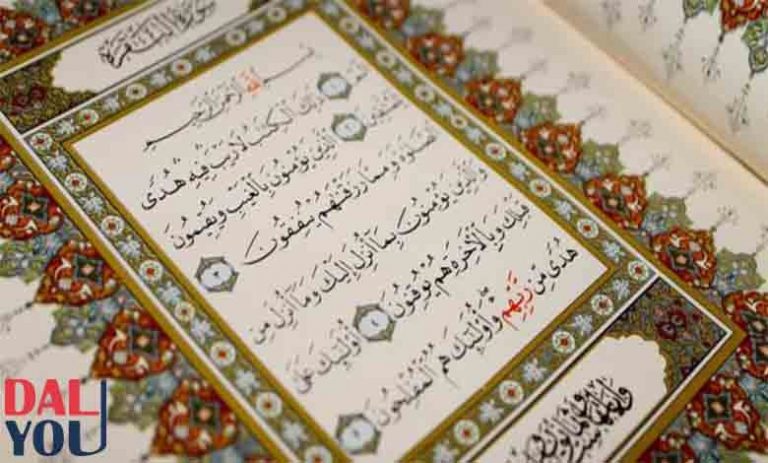 سورة البقرة
بسم الله الرحمن الرحيم
الم ١ ذَٰلِكَ الْكِتَٰبُ لَا رَيْبَ فِيهِ هُدًى
لِلْمُتَّقِينَ ٢ الَّذِينَ يُؤْمِنُونَ بِالْغَيْبِ وَيُقِيمُونَ
الصَّلَوٰةَ وَمِمَّا رَزَقْنَٰهُمْ يُنفِقُونَ ٣
وَالَّذِينَ يُؤْمِنُونَ بِمَا أُنزِلَ إِلَيْكَ وَمَا أُنزِلَ مِن
قَبْلِكَ وَبِالْآخِرَةِ هُمْ يُوقِنُونَ ٤ أُولَٰئِكَ عَلَىٰ
هُدًى مِّن رَّبِّهِمْ وَأُولَٰئِكَ هُمُ الْمُفْلِحُونَ ٥
DAL
YOU